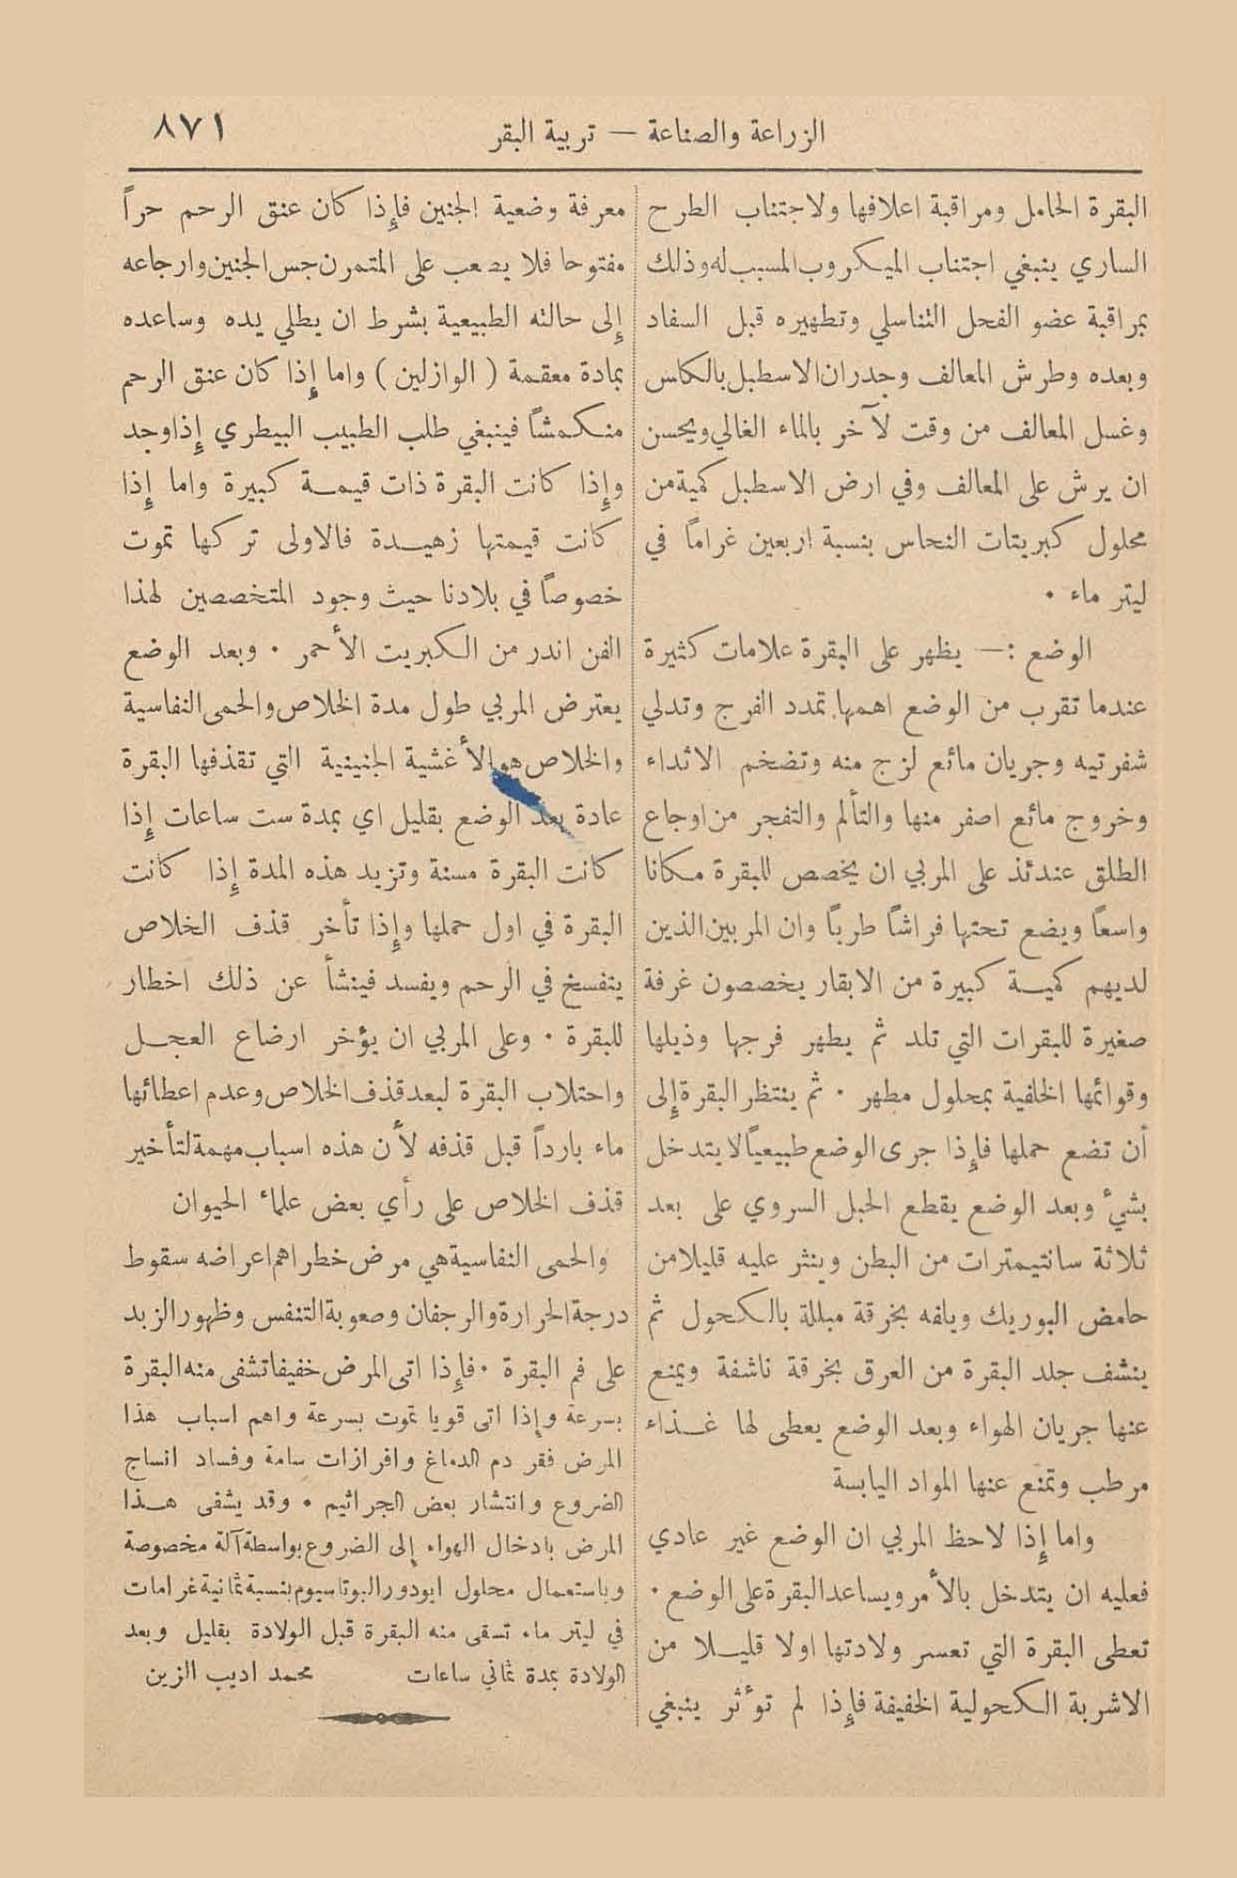 الزراعة والصناعة — تربية البقر
٨٧١
البقرة الحامل ومراقبة اعلافها ولاجتناب الطرح
الساري ينبغي اجتناب الميكروب المسبب له وذلك
بمراقبة عضو الفحل التناسلي وتطهيره قبل السفاد
وبعده وطرش المعالف وجدران الاسطبل بالكلس
وغسل المعالف من وقت لآخر بالماء الغالي ويحسن
ان يرش على المعالف وفي ارض الاسطبل كمية من
محلول كبريتات النحاس بنسبة اربعين غراماً في
ليتر ماء ٠
الوضع : — يظهر على البقرة علامات كثيرة
عندما تقرب من الوضع اهمها تمدد الفرج وتدلي
شفرتيه وجريان مائع لزج منه وتضخم الاثداء
وخروج مائع اصفر منها والتألم والتفجر من اوجاع
الطلق عندئذ على المربي ان يخصص للبقرة مكانا
واسعاً ويضع تحتها فراشاً طرياً وان المربين الذين
لديهم كمية كبيرة من الابقار يخصصون غرفة
صغيرة للبقرات التي تلد ثم يطهر فرجها وذيلها
وقوائمها الخلفية بمحلول مطهر ٠ ثم ينتظر البقرة إلى
أن تضع حملها فإذا جرى الوضع طبيعياً لا يتدخل
بشيء وبعد الوضع يقطع الحبل السروي على بعد
ثلاثة سانتيمترات من البطن وينثر عليه قليلا من
حامض البوريك ويلفه بخرقة مبللة بالكحول ثم
ينشف جلد البقرة من العرق بخرقة ناشفة ويمنع
عنها جريان الهواء وبعد الوضع يعطى لها غذاء
مرطب وتمنع عنها المواد اليابسة
واما إذا لاحظ المربي ان الوضع غير عادي
فعليه ان يتدخل بالأمر ويساعد البقرة على الوضع ٠
تعطى البقرة التي تعسر ولادتها اولا قليلا من
الاشربة الكحولية الخفيفة فإذا لم تؤثر ينبغي
معرفة وضعية الجنين فإذا كان عنق الرحم حراً
مفتوحا فلا يصعب على المتمرن جس الجنين وارجاعه
إلى حالته الطبيعية بشرط ان يطلي يده وساعده
بمادة معقمة ( الوازلين ) واما إذا كان عنق الرحم
منكمشاً فينبغي طلب الطبيب البيطري إذا وجد
وإذا كانت البقرة ذات قيمة كبيرة واما إذا
كانت قيمتها زهيدة فالاولى تركها تموت
خصوصاً في بلادنا حيث وجود المتخصصين لهذا
الفن اندر من الكبريت الأحمر ٠ وبعد الوضع
يعترض المربي طول مدة الخلاص والحمى النفاسية
والخلاص هو الأغشية الجنينية التي تقذفها البقرة
عادة بعد الوضع بقليل اي بمدة ست ساعات إذا
كانت البقرة مسنة وتزيد هذه المدة إذا كانت
البقرة في اول حملها وإذا تأخر قذف الخلاص
يتفسخ في الرحم ويفسد فينشأ عن ذلك اخطار
للبقرة ٠ وعلى المربي ان يؤخر ارضاع العجل
واحتلاب البقرة لبعد قذف الخلاص وعدم اعطائها
ماء بارداً قبل قذفه لأن هذه اسباب مهمة لتأخير
قذف الخلاص على رأي بعض علماء الحيوان
والحمى النفاسية هي مرض خطر اهم اعراضه سقوط
درجة الحرارة والرجفان وصعوبة التنفس وظهور الزبد
على فم البقرة ٠ فإذا اتى المرض خفيفا تشفى منه البقرة
بسرعة وإذا اتى قويا تموت بسرعة واهم اسباب هذا
المرض فقر دم الدماغ وافرازات سامة وفساد انساج
الضروع وانتشار بعض الجراثيم ٠ وقد يشفى هذا
المرض بادخال الهواء إلى الضروع بواسطة آلة مخصوصة
وباستعمال محلول ايودور البوتاسيوم بنسبة ثمانية غرامات
في ليتر ماء تسقى منه البقرة قبل الولادة بقليل وبعد
الولادة بمدة ثماني ساعات محمد اديب الزين